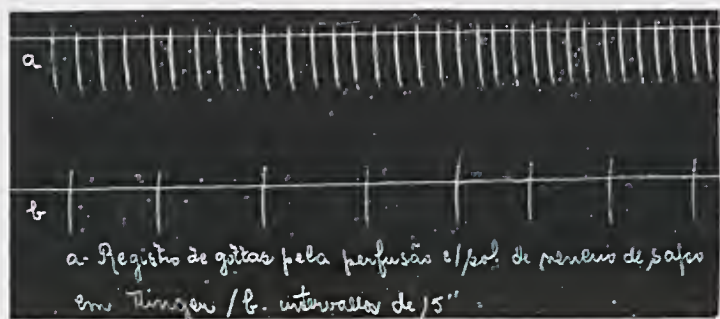 a
b
a- Registro de gottas pela perfusão c/sol. de veneno de sapo
em Ringer / b. intervallos de 15"